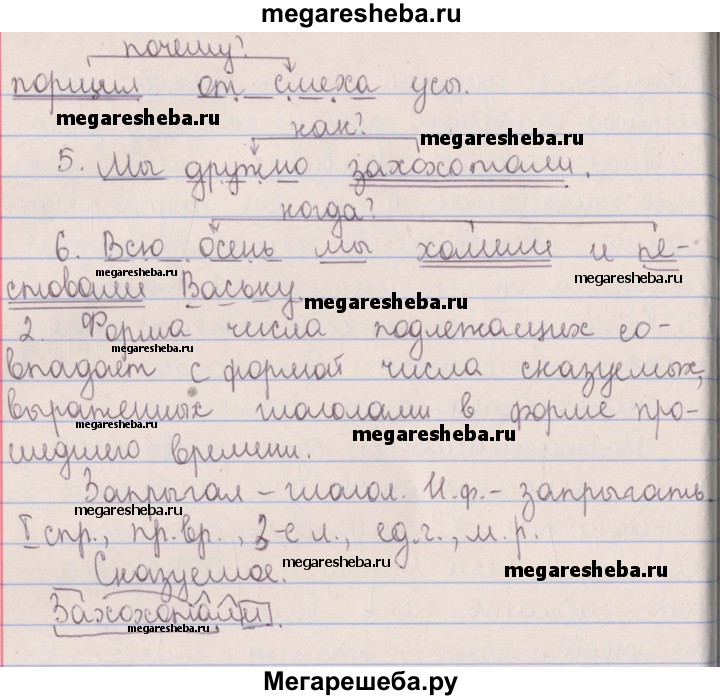 megaresheba.ru
почему?
порщил от смеха усы.
megaresheba.ru
как?
megaresheba.ru
5. Мы дружно захохотали.
когда?
6. Всю осень мы холили и пе-
megaresheba.ru
megaresheba.ru
стовали Ваську.
megaresheba.ru
2. Форма числа подлежащих со-
megaresheba.ru
впадает с формой числа сказуемых,
выраженных глаголами в форме про-
megaresheba.ru
megaresheba.ru
шедшего времени.
Запрыгал – глагол. И.ф. – запрыгать.
I спр., пр.вр., 3-е л., ед.ч., м.р.
megaresheba.ru
megaresheba.ru
Сказуемое.
megaresheba.ru
megaresheba.ru
Захохотали.
megaresheba.ru
Мегарешеба.ру